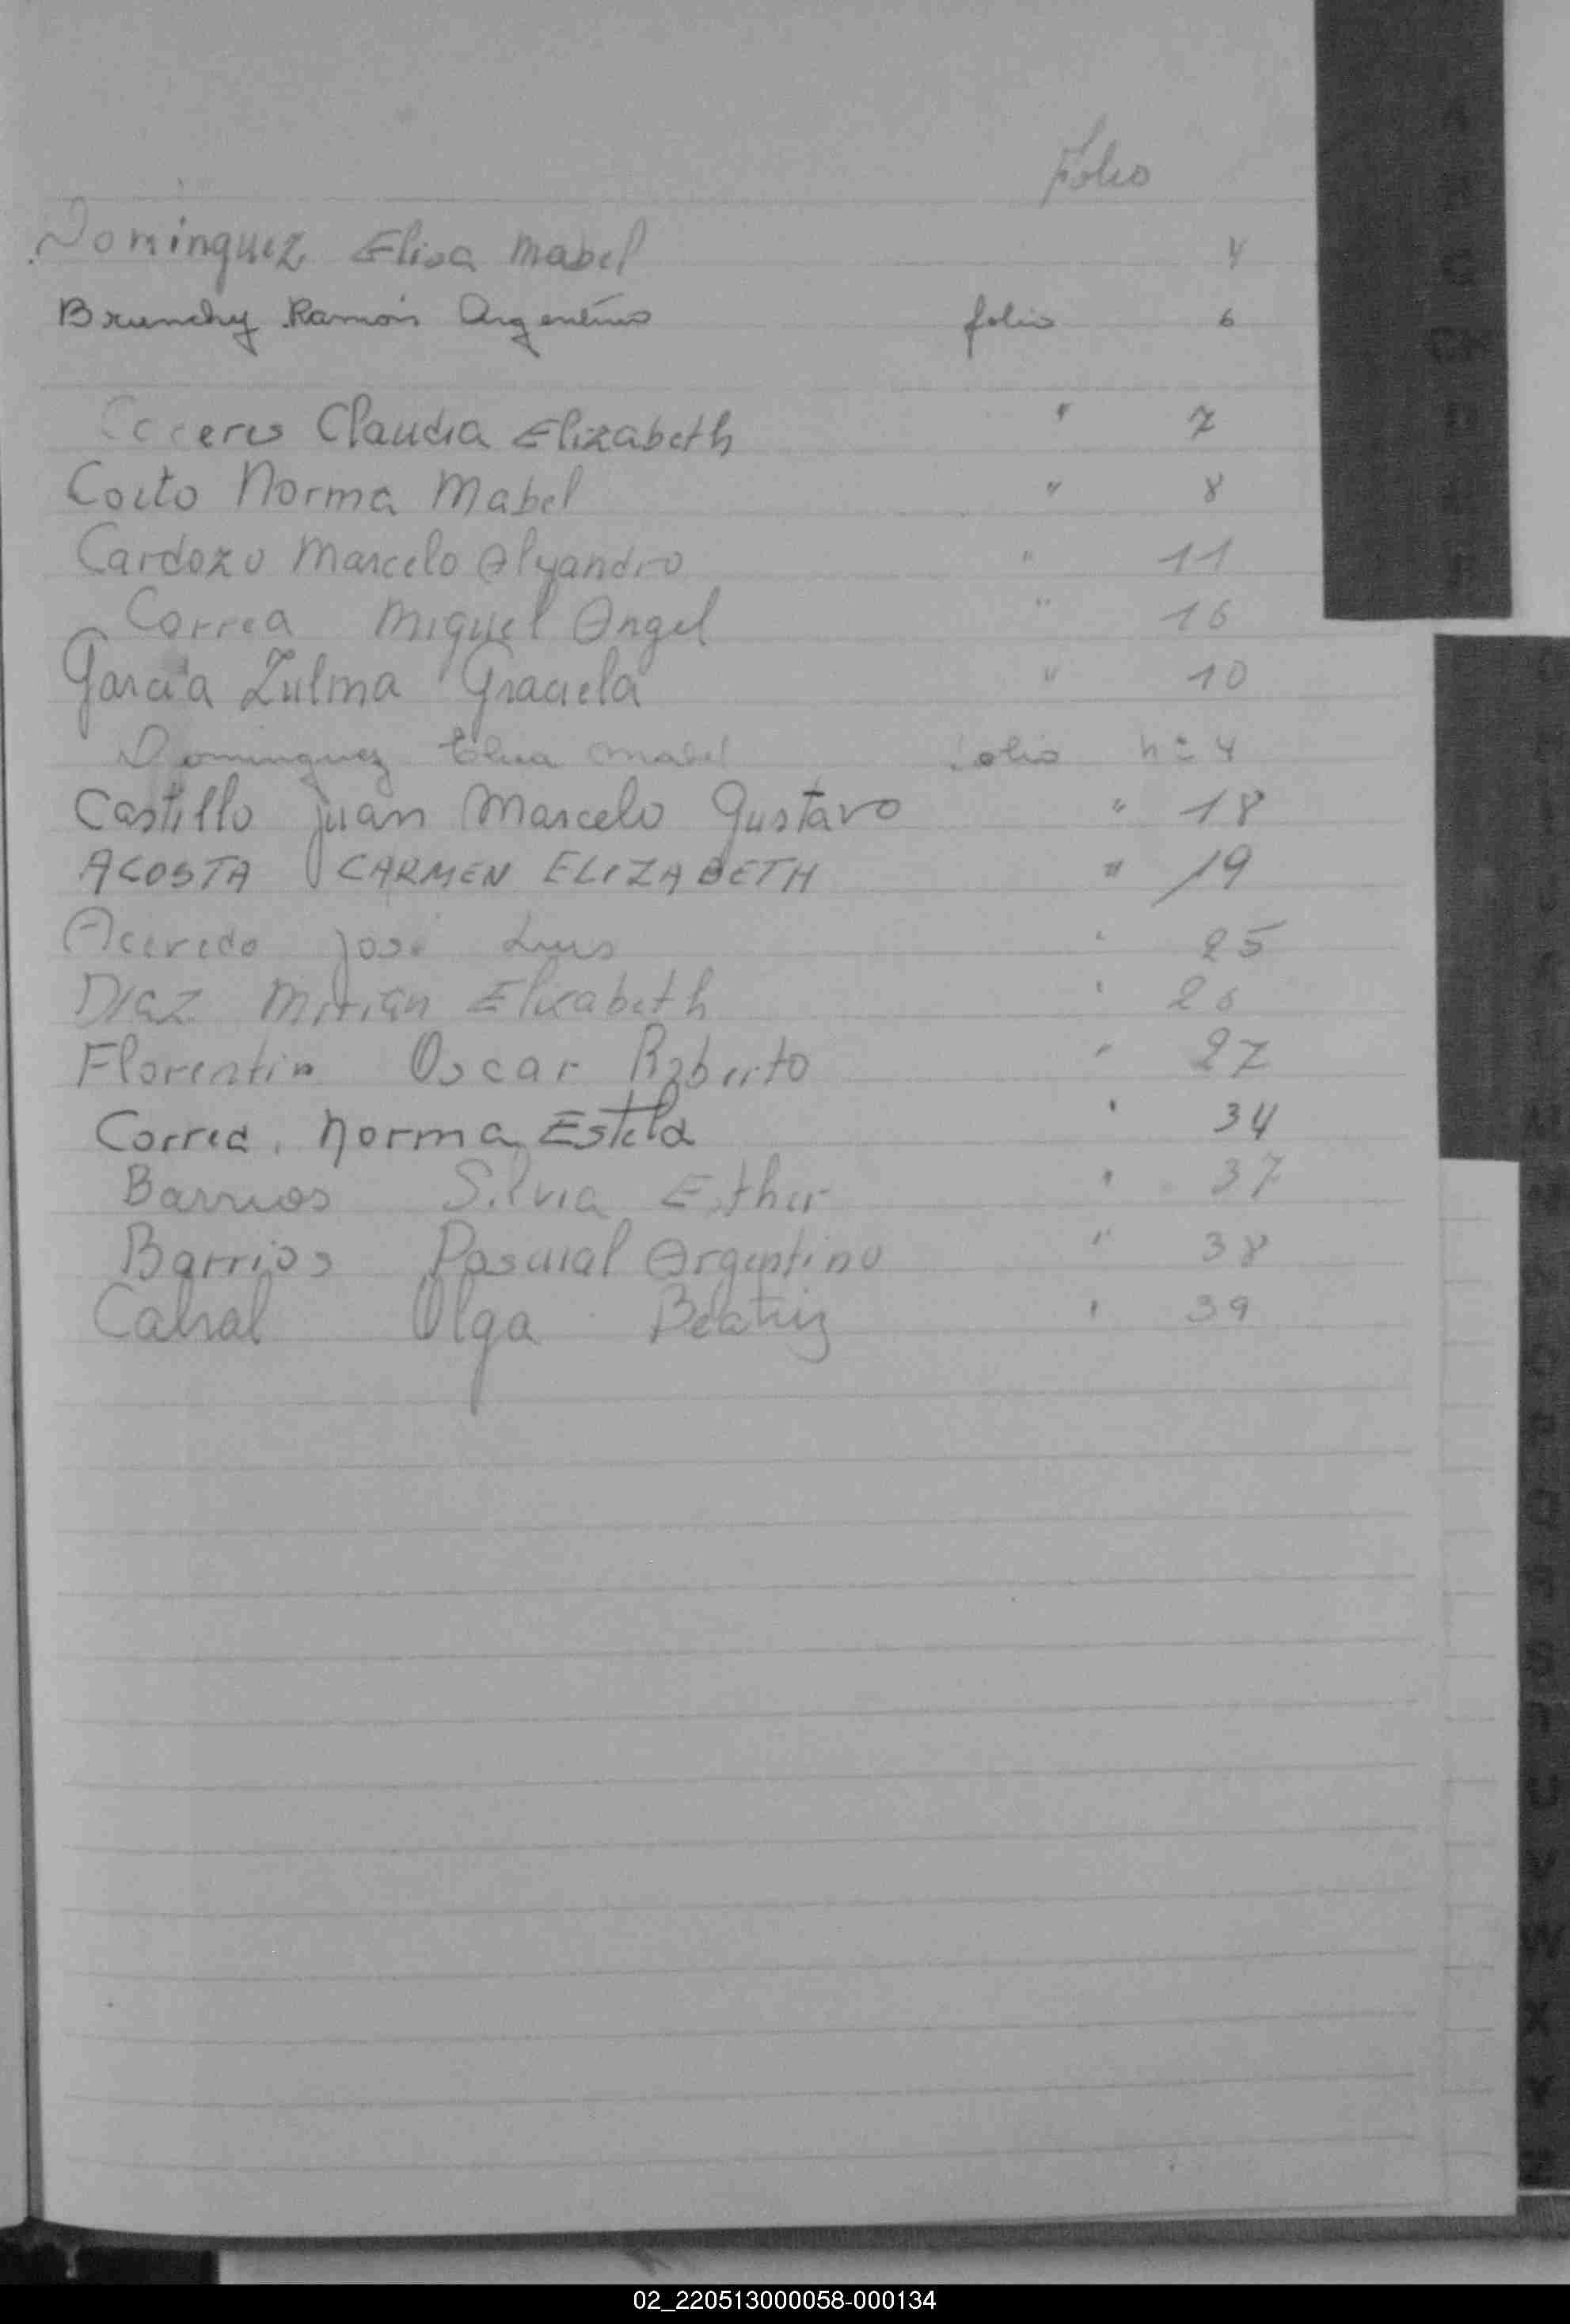 Folio
Dominguez Elisa Mabel 4
Brunchy Ramón Argentino folio 6
Caceres Claudia Elizabeth " 7
Norma Mabel " 8
Cardozo Marcelo Alejandro " 11
Correa Miguel Angel " 16
Garcia Zulma Graciela " 10
Dominguez Elisa Mabel folio nº 4
Castillo Juan Marcelo Gustavo " 18
ACOSTA CARMEN ELIZABETH " 19
Acevedo José Luis " 25
Diaz Mirian Elizabeth " 26
Florentin Oscar Roberto " 27
Correa, Norma Estela " 34
Barrios Silvia Esther " 37
Barrios Pascual Argentino " 38
Cabral Olga Beatriz " 39
02_220513000058-000134